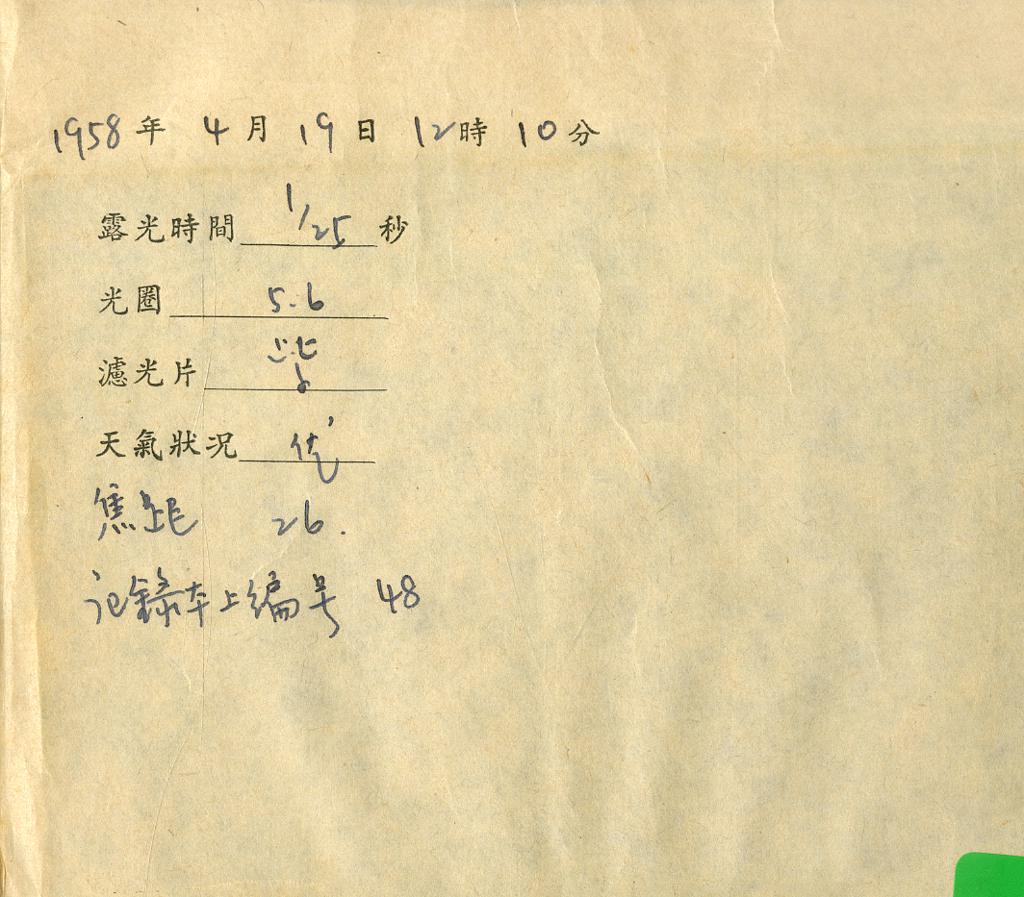 1958年 4月 19日 12時 10分
露光時間 1/25 秒
光圈 5.6
濾光片
天氣狀況 优
焦距 26.
记錄本上編号 48